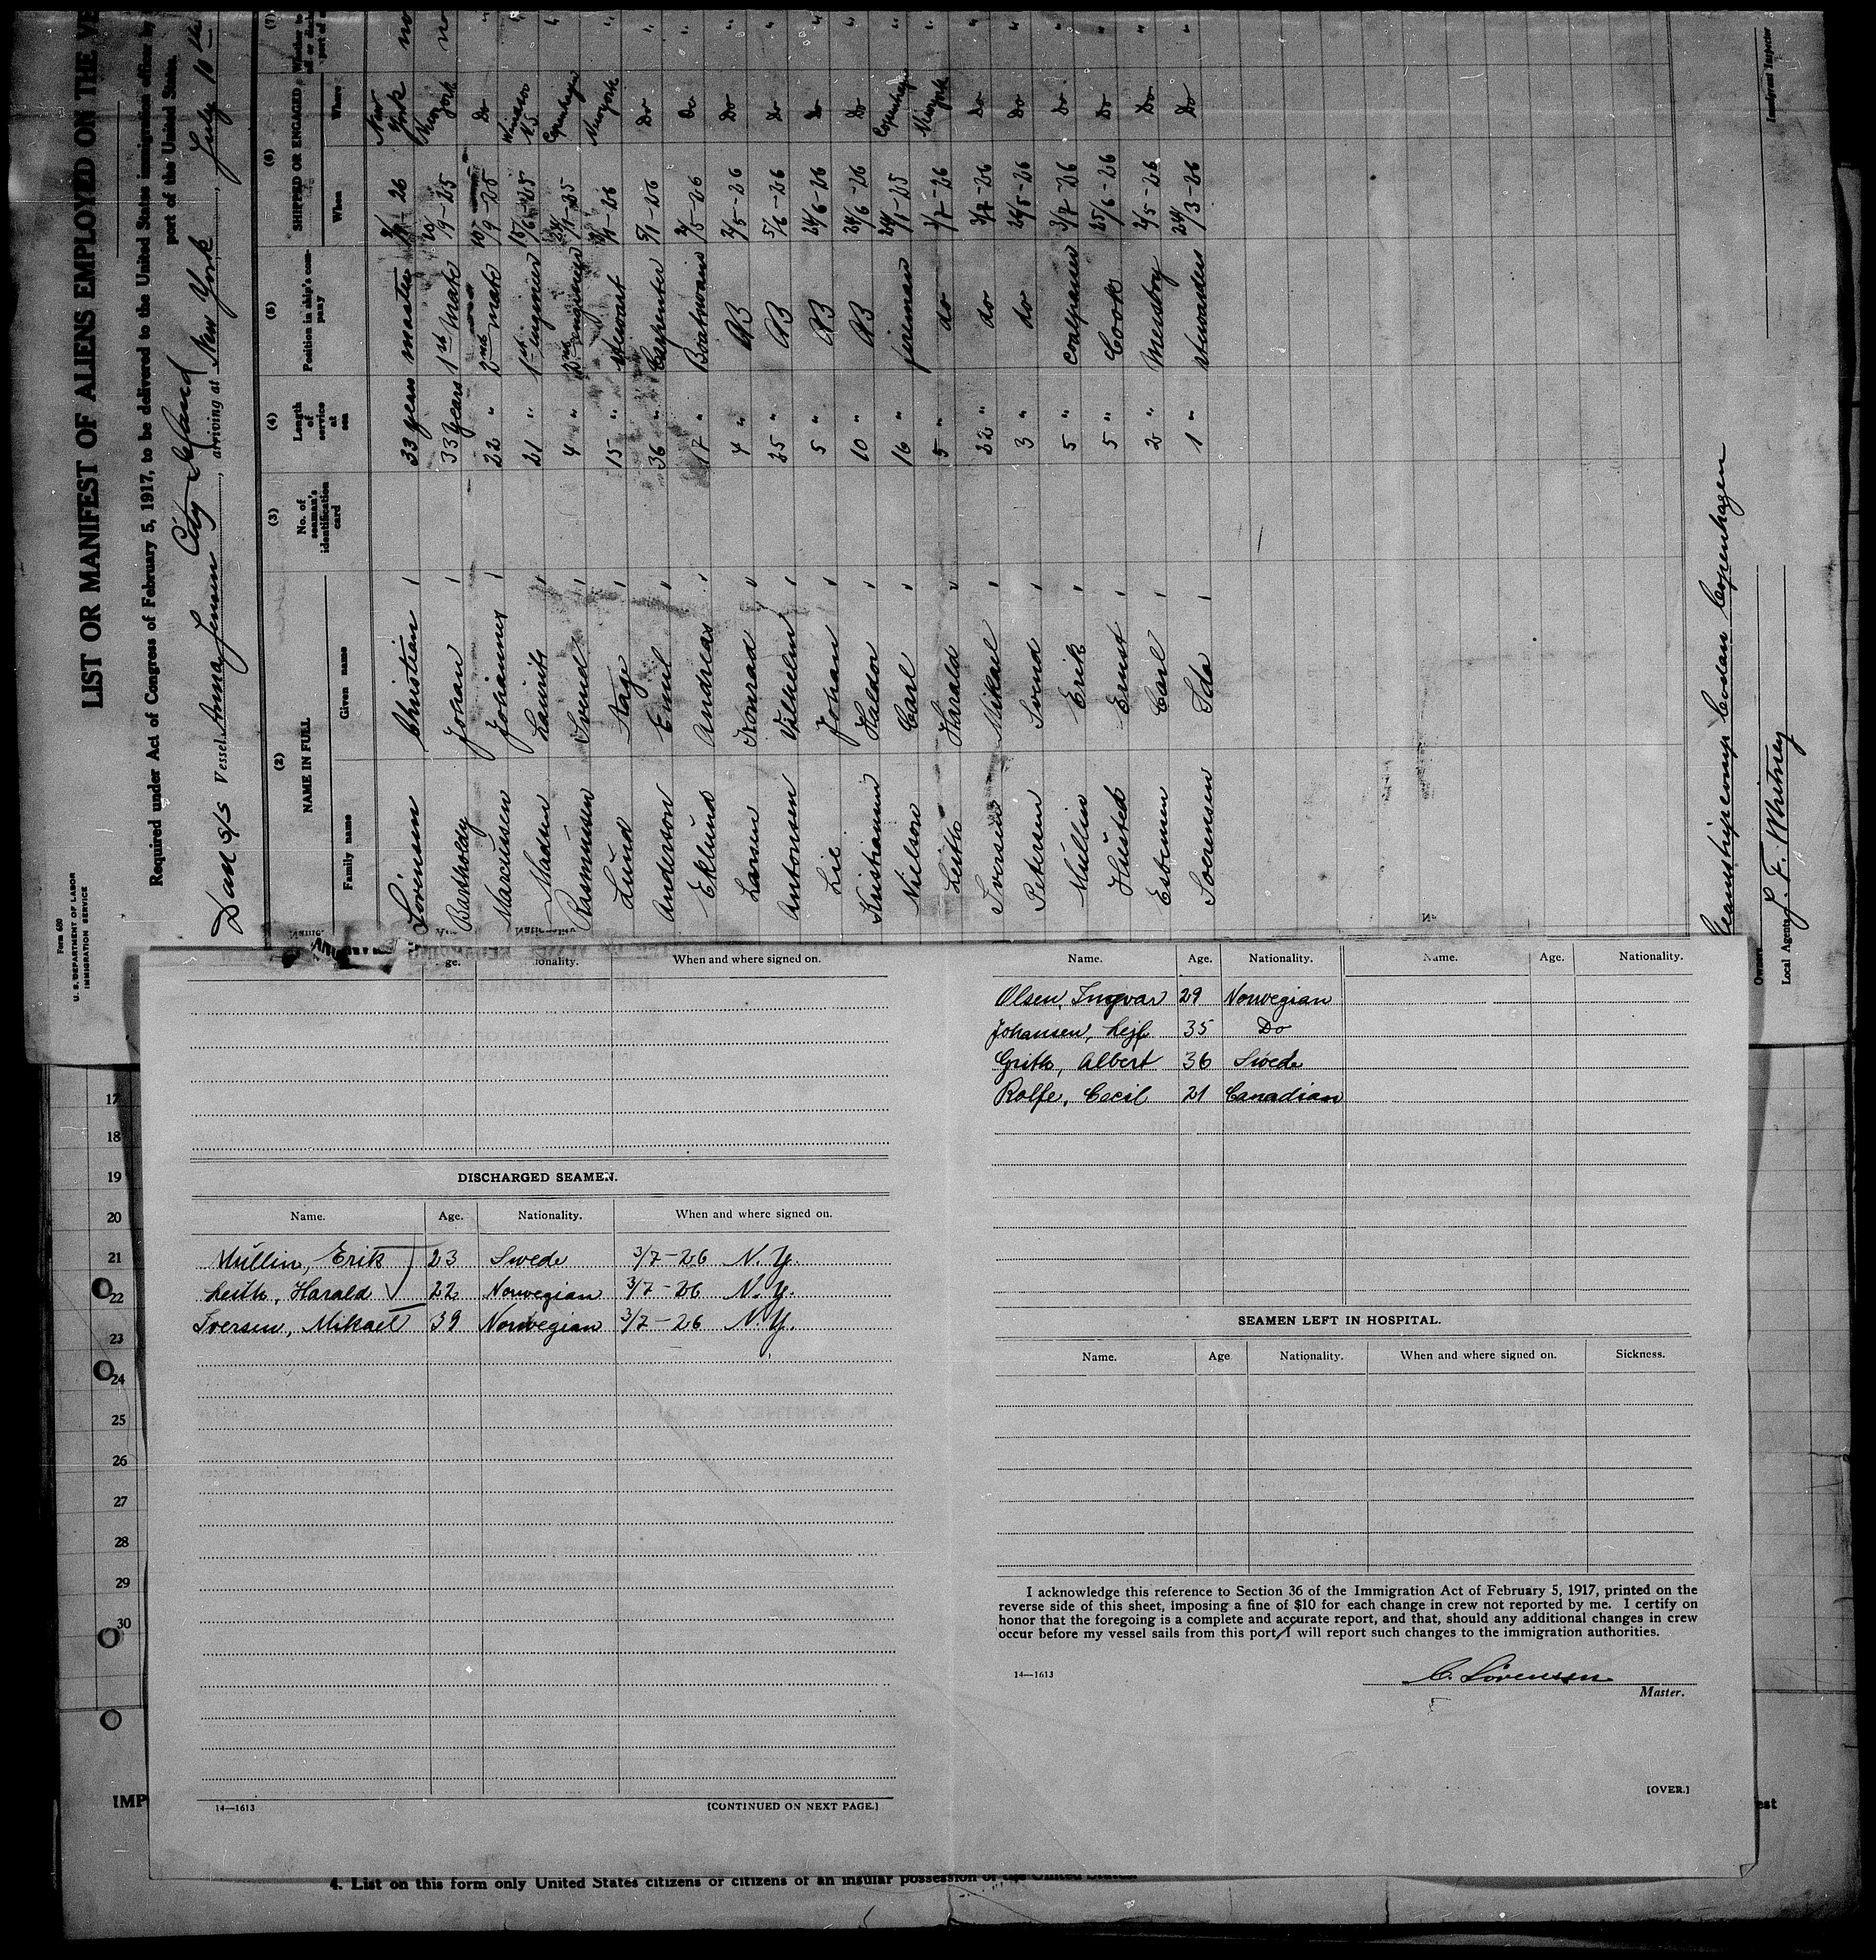 Form 680
U. S. DEPARTMENT OF LABOR
IMMIGRATION SERVICE
LIST OR MANIFEST OF ALIENS EMPLOYED ON THE VE
Required under Act of Congress of February 5, 1917, to be delivered to the United States immigration officer by
port of the United States.
Dan S/S Vessel Anna Jensen City Island, arriving at New York, July 10th
(2) (3) (4) (5) (6) (7)
NAME IN FULL No. of seaman's identification card Length of service at sea Position in ship's company SHIPPED OR ENGAGED Whether to
Family name Given name When Where
Sörensen Christian 33 years master 26 New York no
Bartholdy Johan 33 years 1st Mate 10/9-25 New York no
Marcussen Johannes 22 " 2nd mate 10/9-25 Do "
Madsen Lauritz 21 " 1st engineer 15/6-25 Windsor N.S. "
Rasmussen Svend 4 " 2nd engineer 25 Copenhagen "
Lund Aage 15 " Stewart 26 New York "
Anderson Emil 36 " Carpenter 5/1-26 Do "
Eklund Andreas 17 " Boatswain 26 Do "
Larsen Konrad 4 " AB 2/5-26 Do "
Antonsen Vilhelm 25 " AB 5/6-26 Do "
Lie Johan 5 " AB 24/6-26 Do "
Kristiansen Haldor 10 " AB 24/6-26 Do "
Nielson Carl 16 " fireman 24/1-25 Copenhagen "
Leith Harald 5 " do 3/7-26 New York "
Iversen Mikael 22 " do 3/7-26 Do "
Petersen Svend 3 " do 24/5-26 Do "
Mullin Erik 5 " coalpasser 3/7-26 Do "
Husted Ernst 5 " Cook 25/6-26 Do "
Esbensen Carl 2 " Messboy 2/5-26 Do "
Soerensen Ida 1 " stewardess 24/3-26 Do "
Steamship comp Codan Copenhagen
Owners
Local Agents J. F. Whitney
Immigrant Inspector
ge. ionality. When and where signed on.
DISCHARGED SEAMEN.
Name. Age. Nationality. When and where signed on.
Mullin, Erik 23 Swede 3/7-26 N.Y.
Leith, Harald 22 Norwegian 3/7-26 N.Y.
Iversen, Mikael 39 Norwegian 3/7-26 N.Y.
14—1613 [CONTINUED ON NEXT PAGE.]
Name. Age. Nationality. Name. Age. Nationality.
Olsen, Ingvar 29 Norwegian
Johansen, Leif 35 Do
Grith, Albert 36 Swede
Rolfe, Cecil 21 Canadian
SEAMEN LEFT IN HOSPITAL.
Name. Age Nationality. When and where signed on. Sickness.
I acknowledge this reference to Section 36 of the Immigration Act of February 5, 1917, printed on the
reverse side of this sheet, imposing a fine of $10 for each change in crew not reported by me. I certify on
honor that the foregoing is a complete and accurate report, and that, should any additional changes in crew
occur before my vessel sails from this port, I will report such changes to the immigration authorities.
14—1613
C. Sörensen
Master.
[OVER.]
17
18
19
20
21
22
23
24
25
26
27
28
29
30
IMP
est
4. List on this form only United States citizens or citizens of an insular possession of the United States.